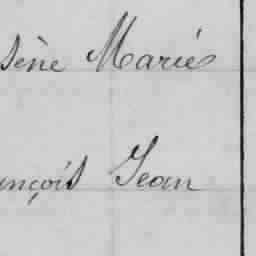 sène Marié
ançois Jean